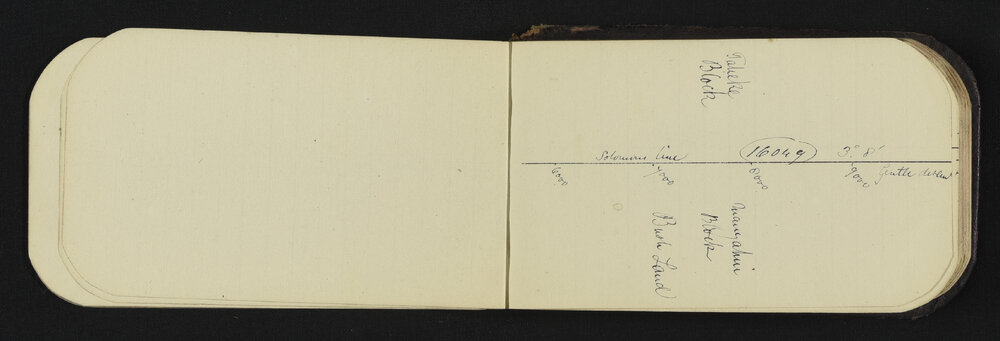 Taheke
Block
Solomons line
16049
3° 8'
6000
7000
8000
9000
Gentle descent
Block
Bush Land